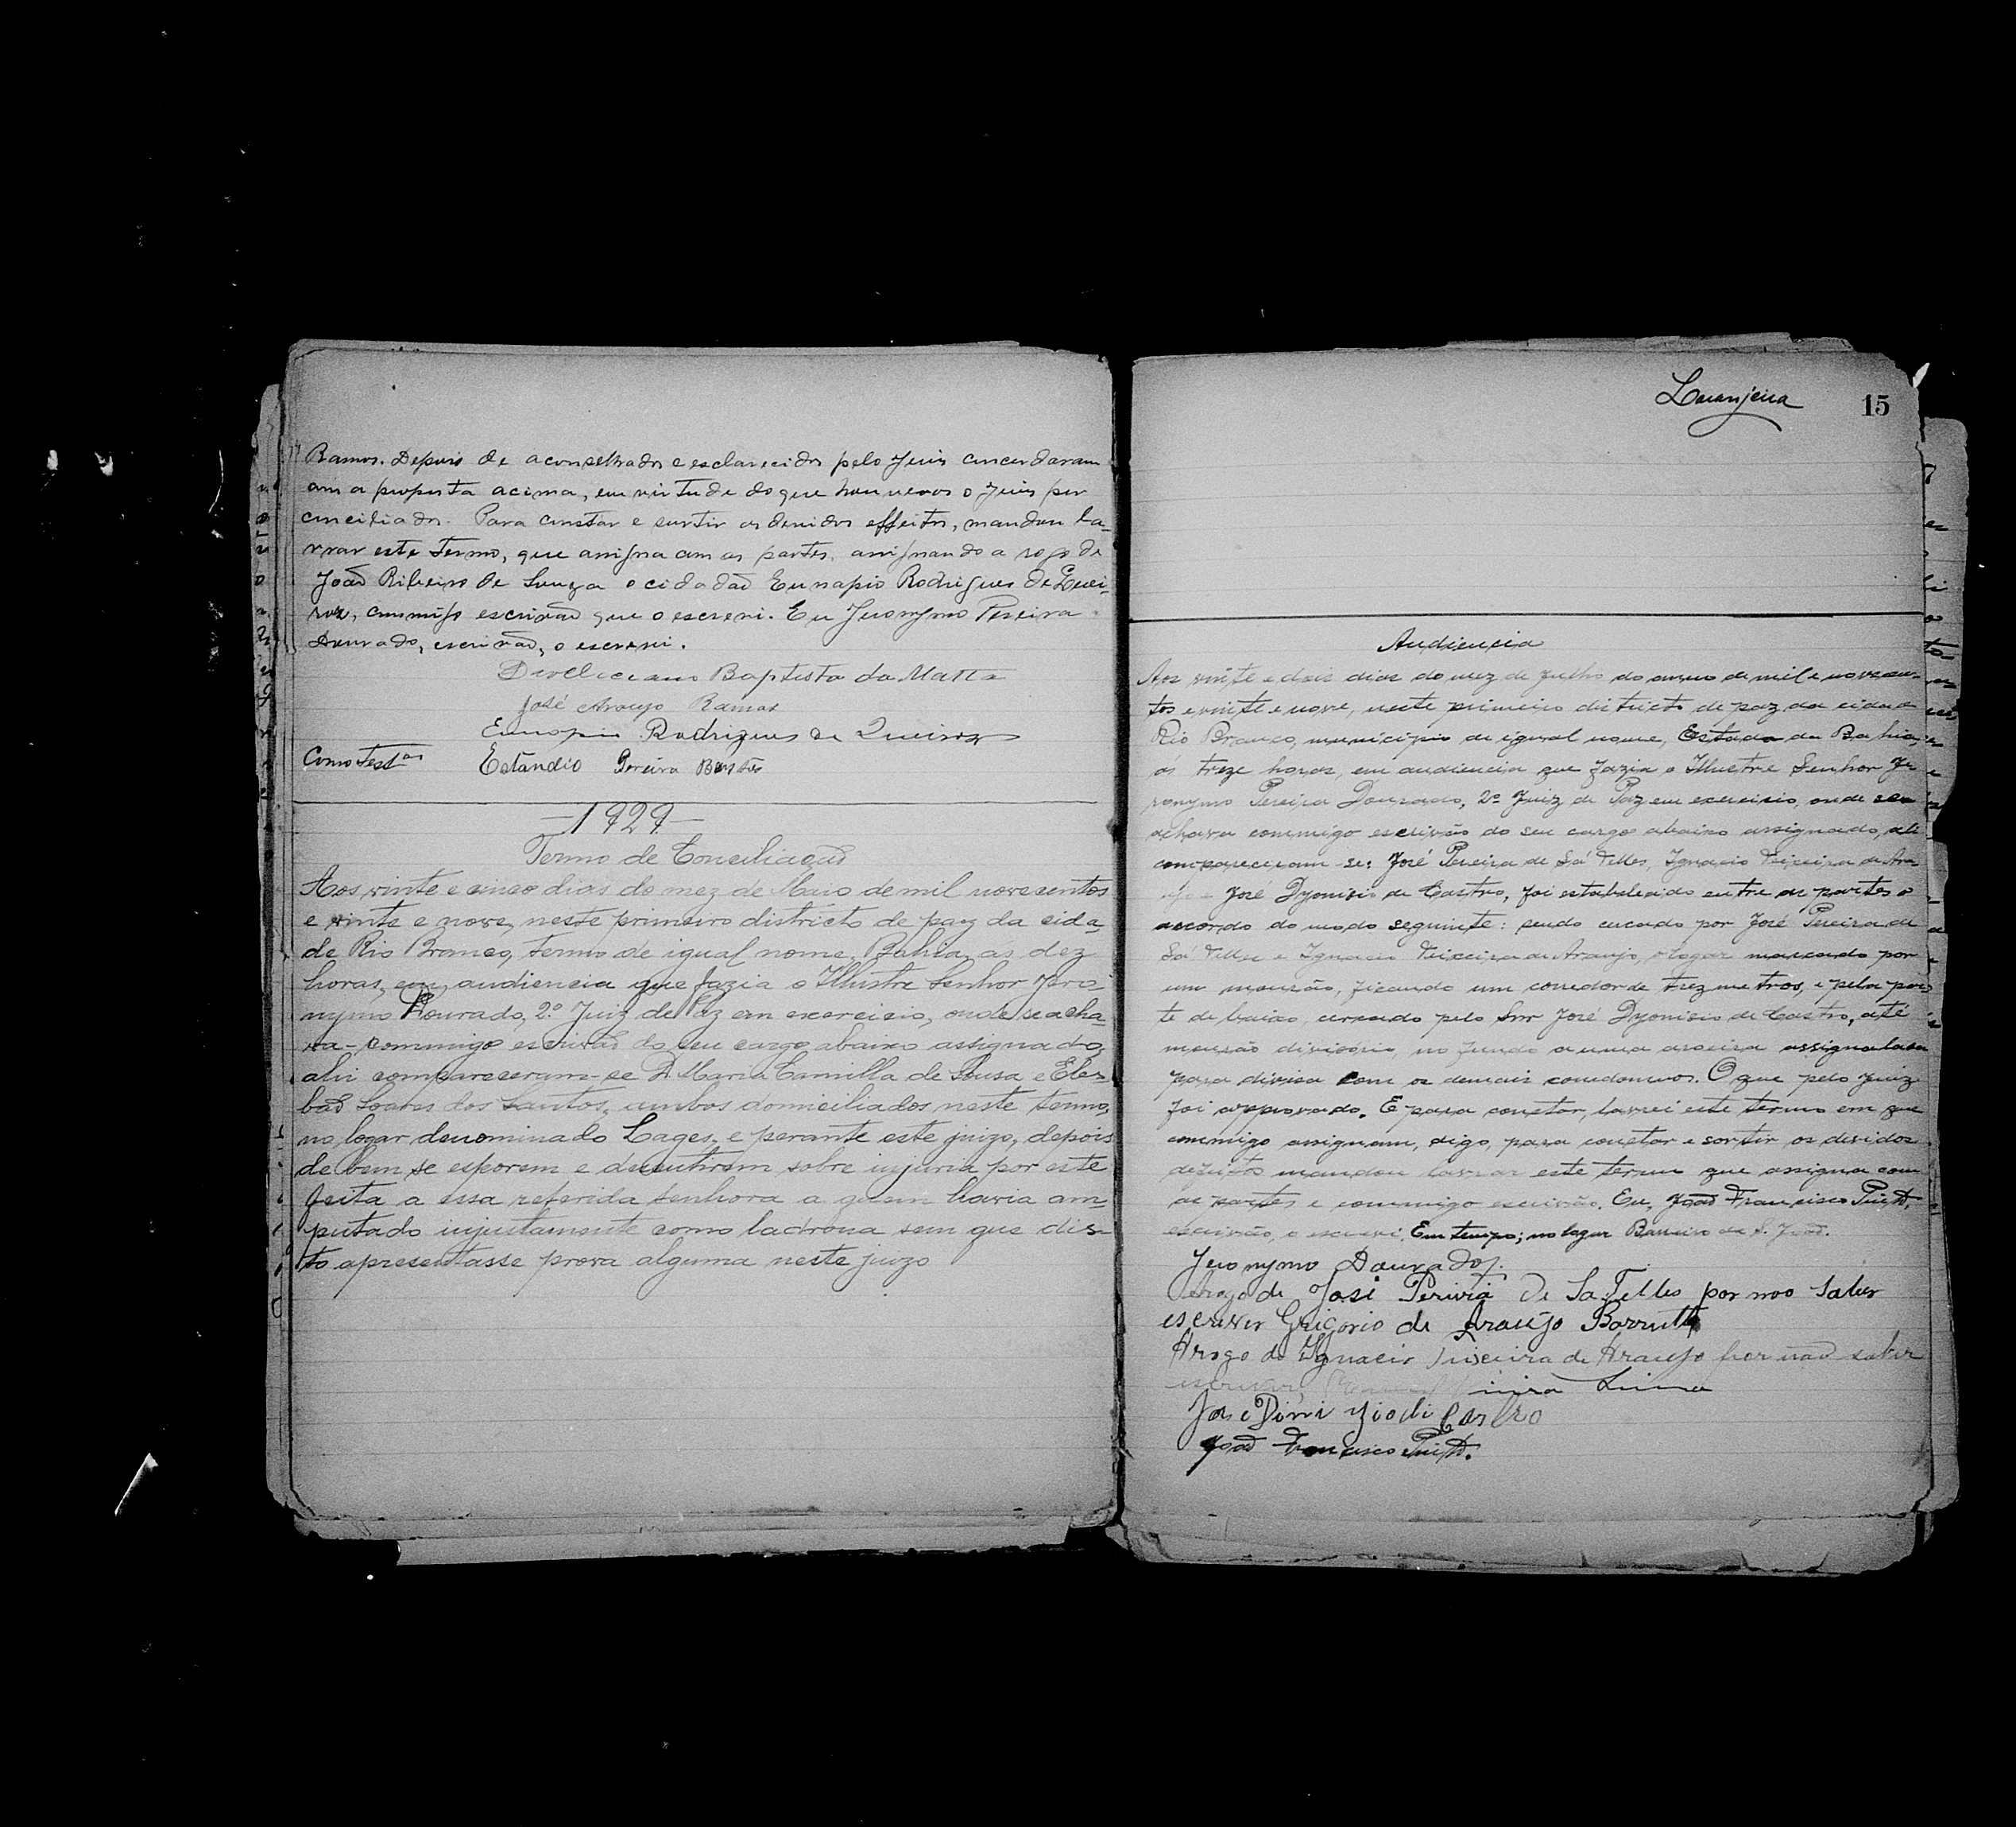 Ramos. Depois de aconselhados e esclarecidos pelo Juis concordaram
am a proposta acima, em virtude do que houveros o Juis por
conciliados. Para constar e surtir os devidos effeitos, mandou la-
vrar este termo, que assigna com as partes, assignando a rogo de
João Ribeiro de Souza o cidadão Eunapio Rodrigues de Quei-
roz, commigo escrivão que o escrevi. Eu Jeronymo Pereira
Dourado, escrivão, o escrevi.
Diocleciano Baptista da Matta
José Araujo Ramos
Eunapio Rodrigues de Queiroz
Como testas Estandio Pereira Bastos
—1929—
Termo de Conciliação
Aos vinte e cinco dias do mez de Maio de mil novesentos
e vinte e nove, neste primeiro districto de paz da cida-
de Rio Branco, termo de igual nome, Bahia, as dez
horas, em audiencia que fazia o Illustre Senhor Jero-
nymo Dourado, 2º Juiz de Paz em exercicio, onde se acha-
va-commigo escrivão do seu cargo abaixo assignado,
ahi compareceram-se D. Maria Camilla de Sousa e Eles-
bão Soares dos Santos, ambos domiciliados neste termo,
no logar denominado Lages, e perante este juizo, depois
de bem se esporem e discutirem sobre injuria por este
feita a essa referida senhora a quem havia am-
putado injustamente como ladrona sem que dis-
to apresentasse prova alguma neste juizo
Laranjeira 15
Audiencia
Aos vinte e dois dias do mez de Julho do anno de mil e novecen-
tos e vinte e nove, neste primeiro districto de paz da cidade
Rio Branco, municipio de igual nome, Estado da Bahia,
ás treze horas, em audiencia que fazia o Illustre Senhor Je-
ronymo Pereira Dourado, 2º Juiz de Paz em exercicio, onde se
achava commigo escrivão do seu cargo abaixo assignado, ali
compareceram-se: José Pereira de Sá Telles, Ignacio Teixeira de Ara
José Dyonisio de Castro, foi estabelecido entre as partes o
accordo do modo seguinte: sendo cercado por José Pereira de
Sá Telles e Ignacio Teixeira de Araujo, o logar marcado por
um mourão, ficando um corredor de trez metros, e pela par
te de baixo, cercado pelo Snr José Dyonisio de Castro, até
mourão divisorio, no fundo a uma aroeira assignalada
para divisa com os demais condominos. O que pelo juiz
foi approvado. E para constar, lavrei este termo em que
commigo assignam, digo, para constar e sortir os devidos
mandou lavrar este termo que assigna com
as partes e commigo escrivão. Eu, João Francisco
escrivão, o escrevi. Em tempo; no logar Barreiro de S. João.
Jeronymo Dourado.
Arogo de José Perivra de Sa Telles por noo saber
escriver Grigorio di Araujo Barrutto
Arogo de Ignacio Teixeira de Araujo por não saber
escrever, Lima
Jose Dini zio di Castro
João Francisco